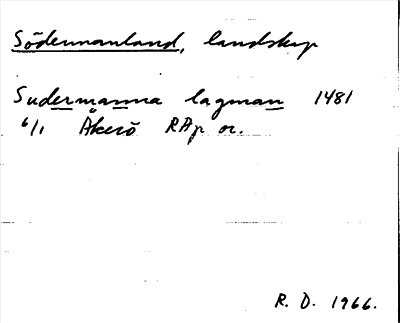 Södermanland, landskap
Sudermanna lagman 1481
6/1 Åkerö RAp or.
R. D. 1966.